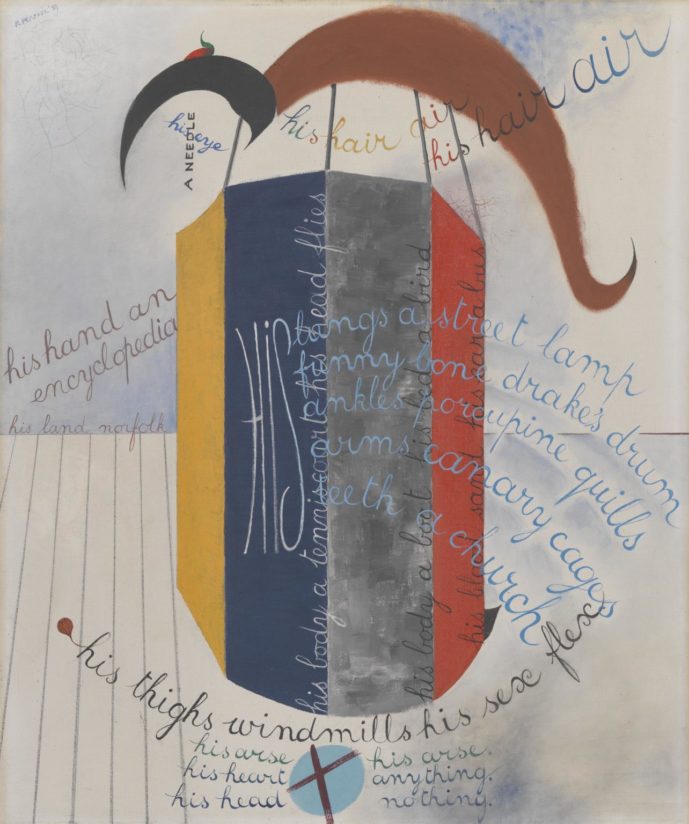 R Penrose 39
his eye
A NEEDLE
his hair air
his hair air
his hand an
encyclopedia
his land norfolk
HIS
lungs a street lamp
funny bone drake's drum
ankles porcupine quills
arms canary cages
teeth a church
his body a tennis court his head flies
his body a boot his a bird
his sand his
his thighs windmills his sex flex
his arse his arse.
his heart anything.
his head nothing.